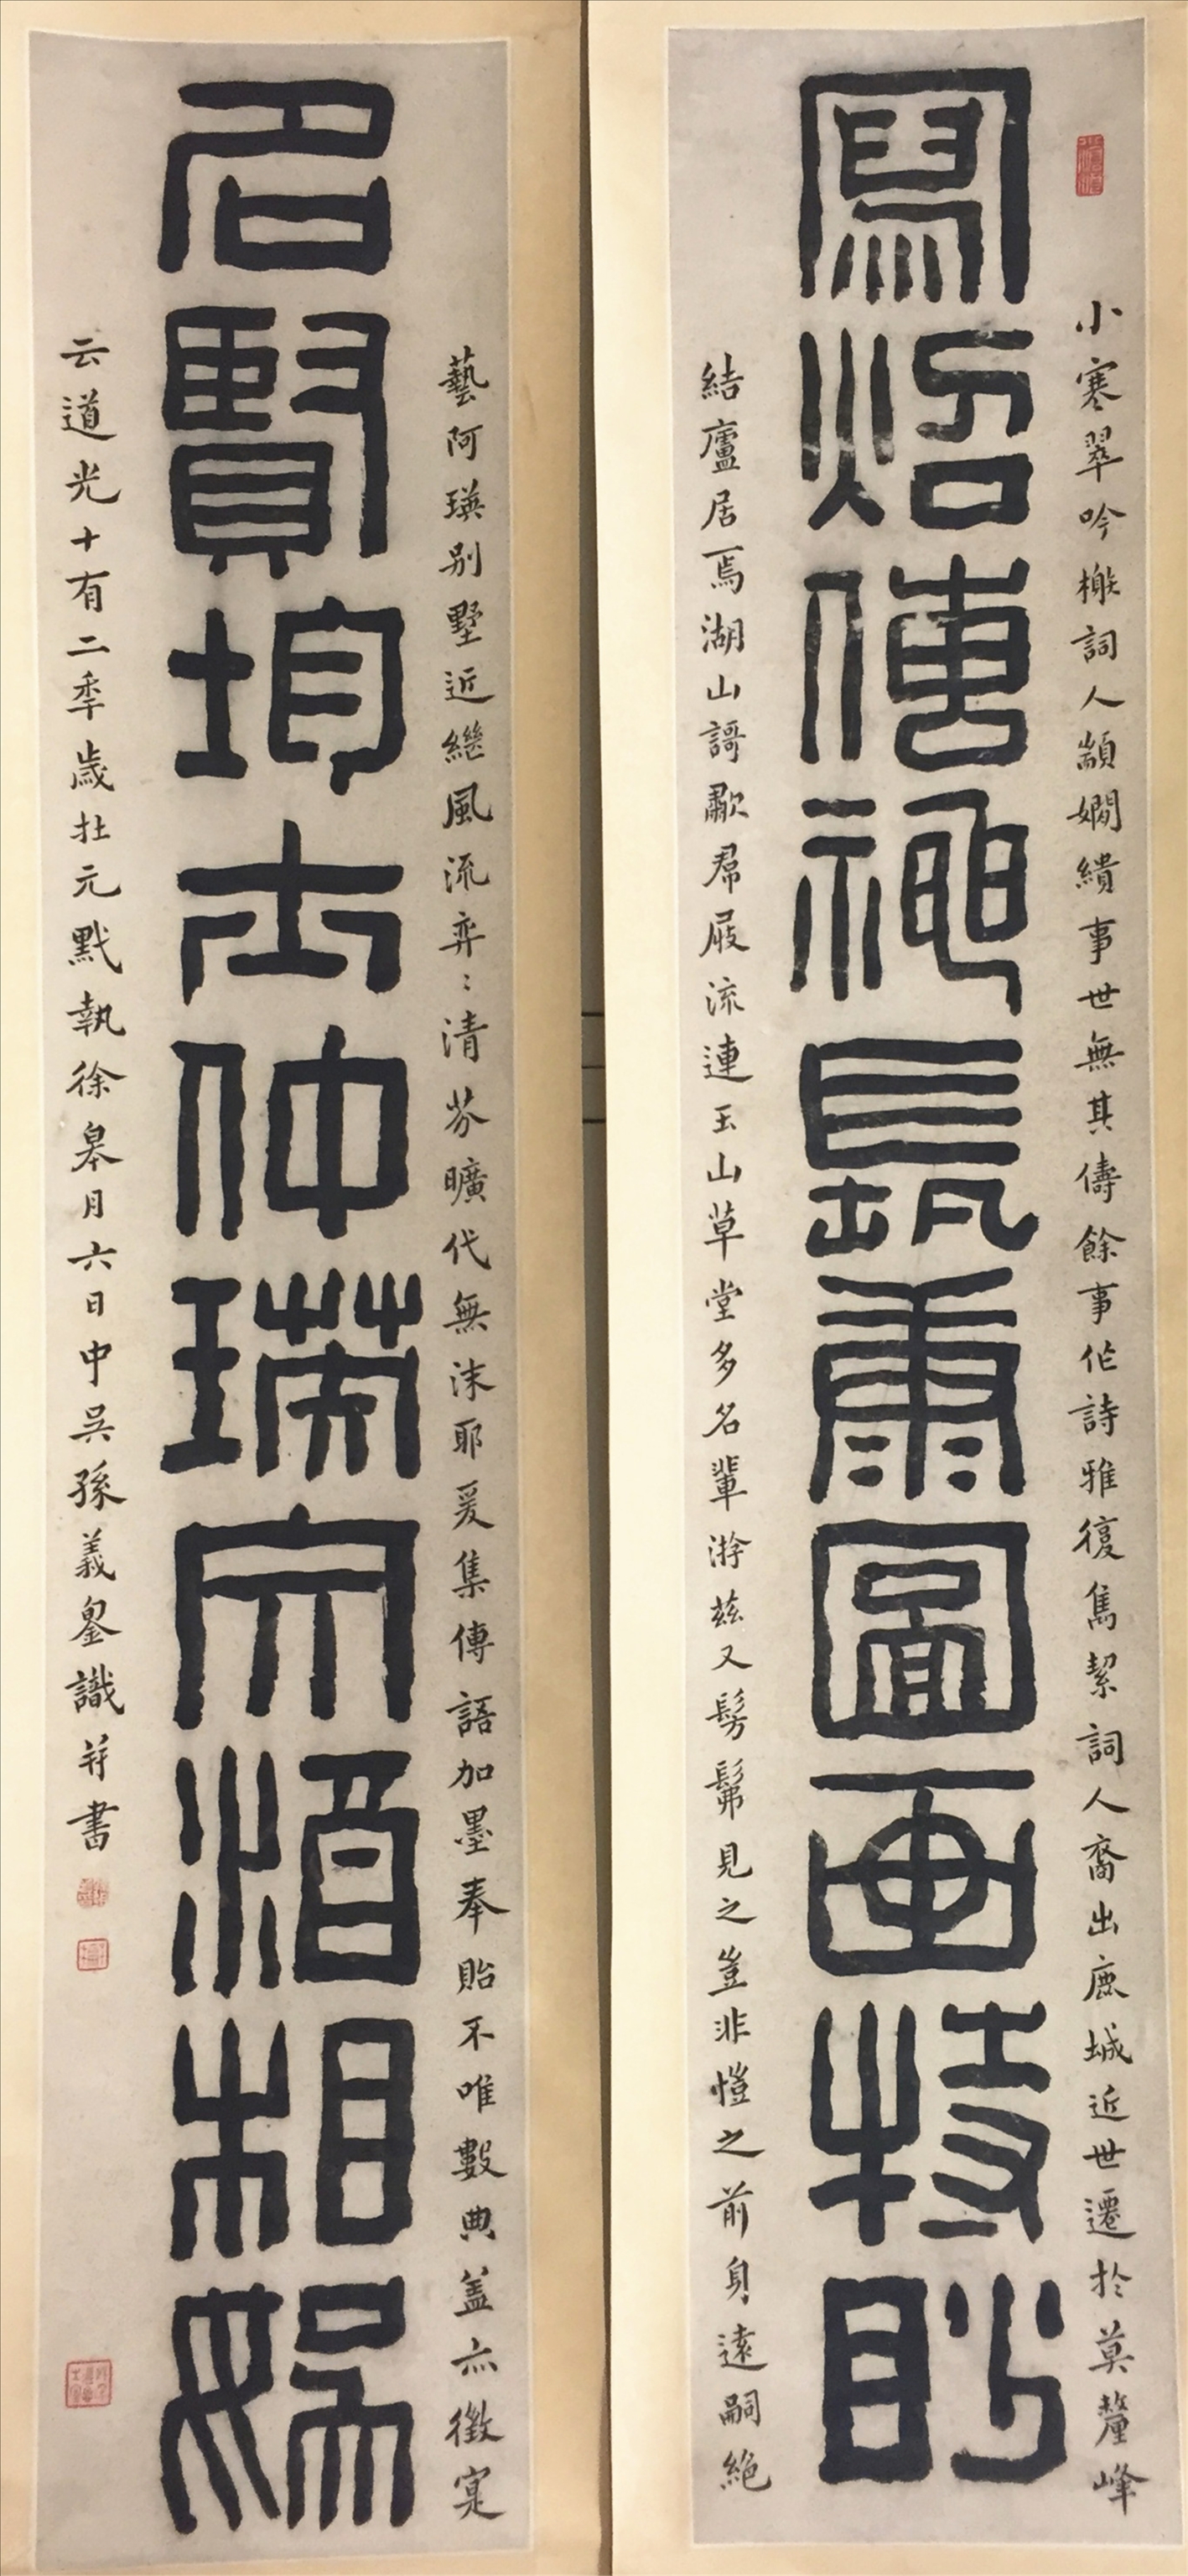 小寒翠吟榭詞人顓嫺繢事世無其儔餘事作詩雅復雋絜詞人裔出鹿城近世遷於莫釐峰
寫炤傳神長康圖畫特眇
結廬居焉湖山謌歗帬屐流連玉山草堂多名輩游茲又髣髴見之豈非愷之前身遠嗣絕
藝阿瑛別墅近繼風流弈〻清芬曠代無沬耶爰集傳語加墨奉貽不唯數典蓋亦徵寔
名賢均仲瑛酒相娛
云道光十有二秊歲在元黓執徐皋月六日中吳孫義鋆識并書